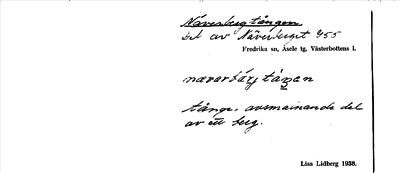 Näverbergtången
del av Näverberget 455
Fredrika sn, Åsele tg. Västerbottens l.
tånge, avsmalnande del
av ett berg.
Lisa Lidberg 1938.